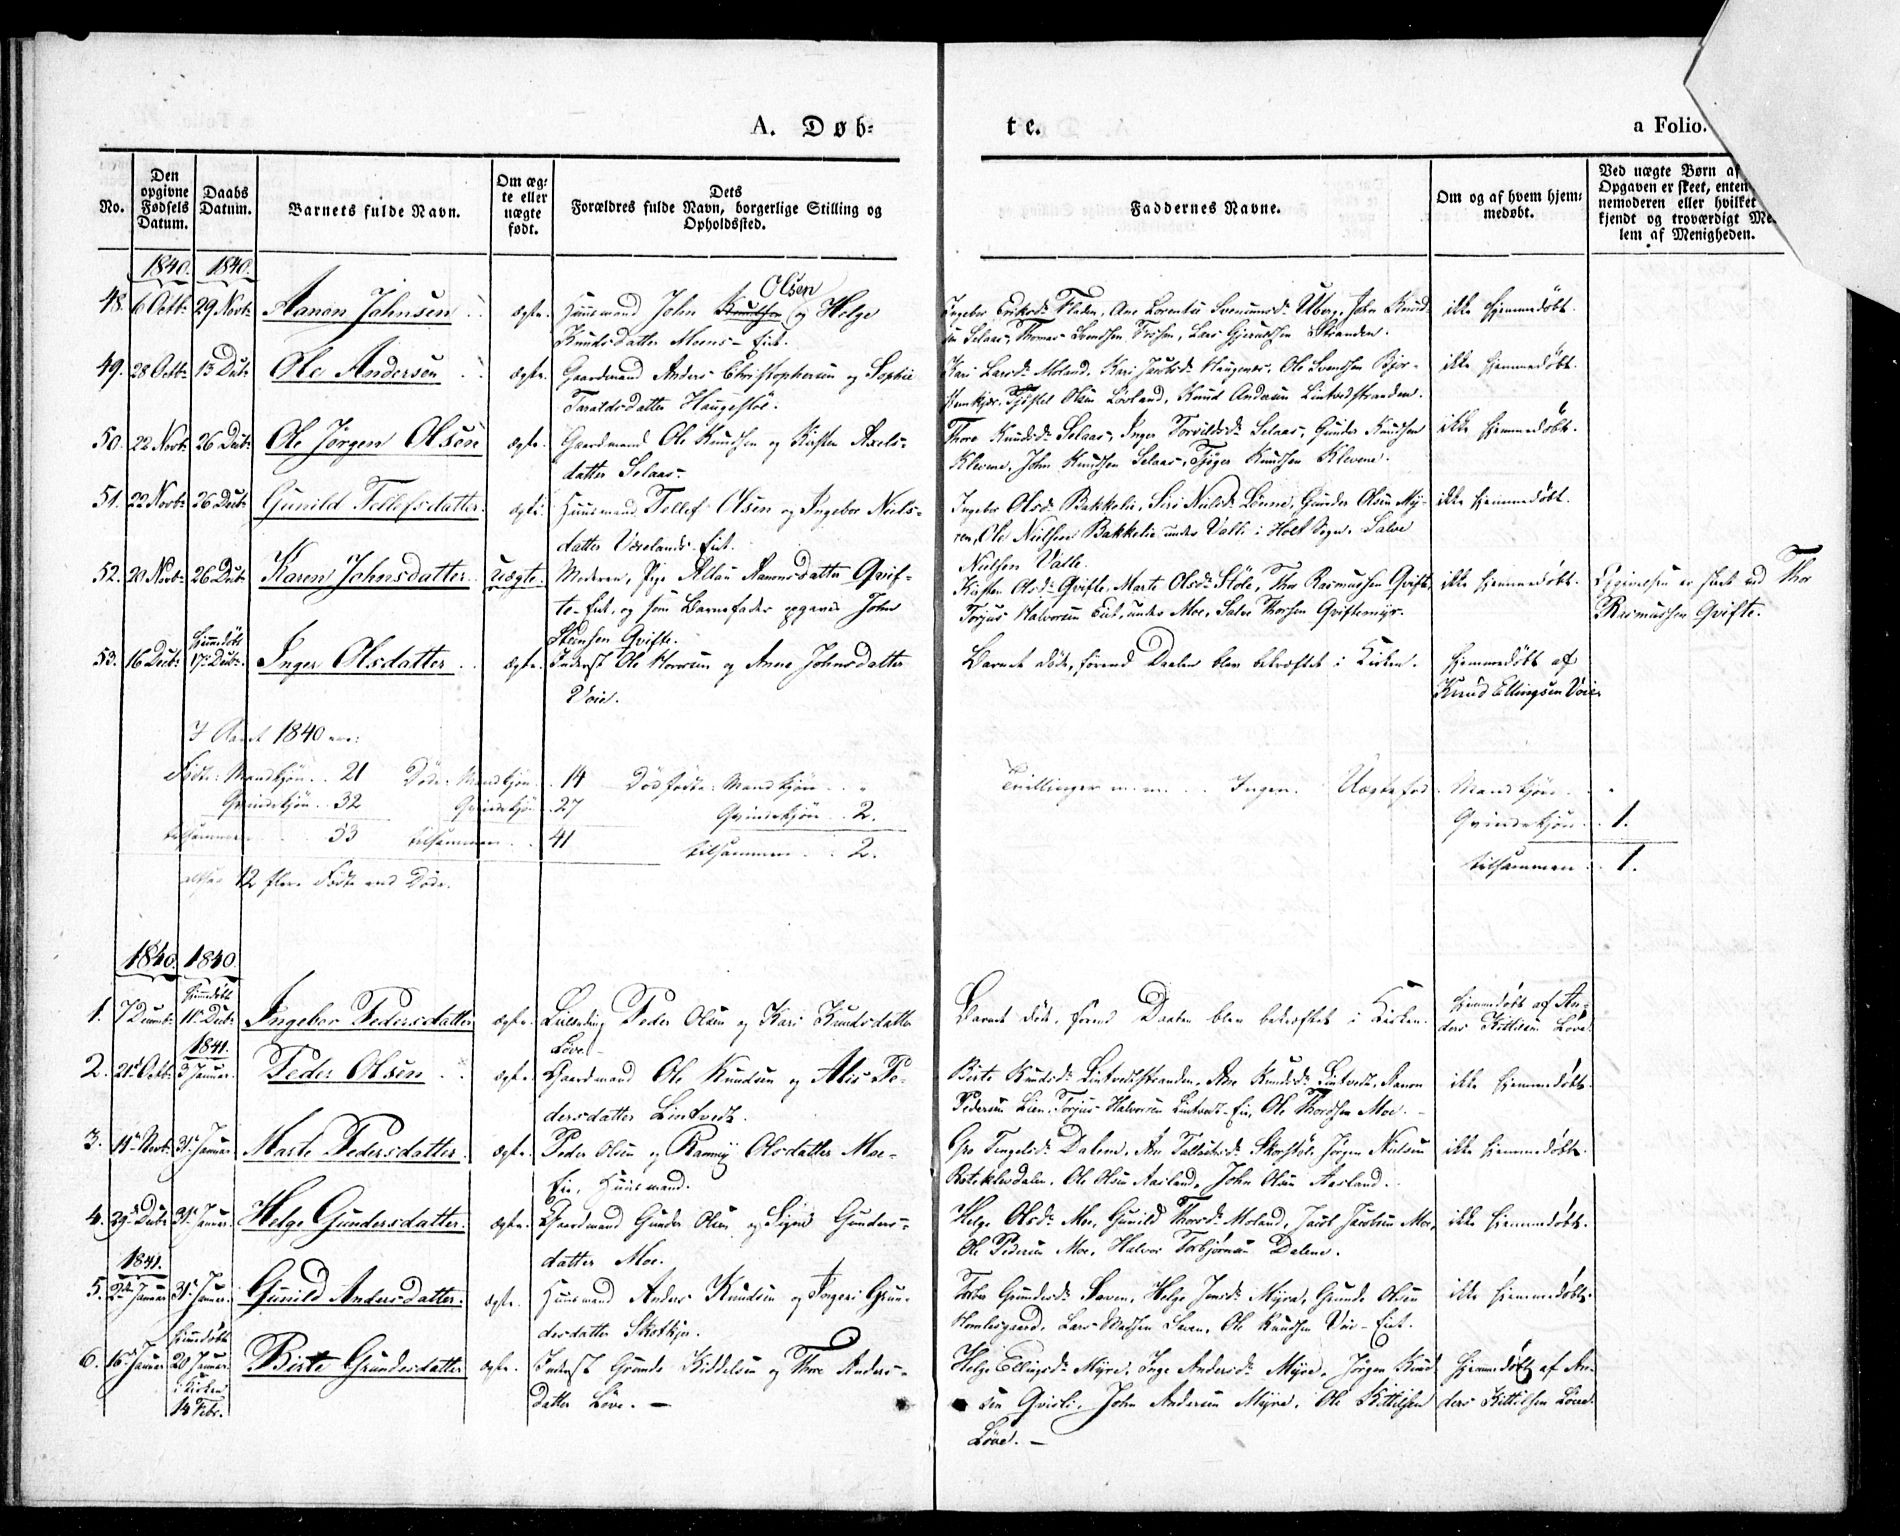 A. Døb-
te.
a Folio.
No.
Den opgivne Fødsels Datum.
Daabs Datum.
Barnets fulde Navn.
Om ægte eller uægte født.
Dets Forældres fulde Navn, borgerlige Stilling og Opholdssted.
Faddernes Navne.
Om og af hvem hjemmedøbt.
Ved uægte Børn af
Opgaven er skeet, enten
nemoderen eller hvilket
kjendt og troværdigt Me
lem af Menigheden.
1840. 1840.
48. 6 Octb: 29 Novb: Aanon Johnsen ægte. Huusmand John Knudsen Olsen og Helge
Knudsdatter Moens-Eiet.
Ingebor Eriksd: Fladen, Ane Lorentse Svenumsd: Uberg, John Knud-
sen Selaas, Thomas Svendsen Fossen, Lars Gjeruldsen Stranden.
ikke hjemmedøbt.
49. 28 Octb: 13 Decb: Ole Andersen ægte. Gaardmand Anders Christophersen og Sophie
Taraldsdatter Haugestöl.
Kari Larsd: Moland, Kari Jacobsd: Haugenes, Ole Svendsen Bjor-
Olsen Lövland, Knud Andersen Lintvedstranden.
ikke hjemmedøbt.
50. 22 Novb: 26 Decb: Ole Jørgen Olsen ægte. Gaardmand Ole Knudsen og Kirsten Axels-
datter Selaas.
Thore Knudsd: Selaas, Inger Torvildsd: Selaas, Gunder Knudsen
Klevene, John Knudsen Selaas, Tjöger Knudsen Klevene.
ikke hjemmedøbt.
51. 22 Novb: 26 Decb: Gunild Tellefsdatter ægte. Huusmand Tellef Olsen og Ingebor Niels-
datter Værelands-Eiet.
Ingebor Olsd: Bakkelie, Siri Nielsd: Lönne, Gunder Olsen My-
ren, Ole Nielsen Bakkelie under Valle i Holt Sogn, Salve
Nielsen Valle.
ikke hjemmedøbt.
52. 20 Novb: 26 Decb: Karen Johnsdatter uægte. Moderen, Pige Altau Aanonsdatter Qvif-
te-Eiet, og som Barnefader opgaves John
Steensen Qvifte.
Kirsten Olsd: Qvifte, Marte Olsd: Støle, Thor Rasmussen Qvifte,
Torjus Halvorsen Eiet under Moe, Salve Thorsen Qviftemyr.
ikke hjemmedøbt.
Opgivelsen er skeet ved Thor
Rasmussen Qvifte.
53. 16 Decb: hjemmedøbt 17 Decb: Inger Olsdatter ægte. Inderst Ole Hansen og Anne Johnsdatter
Voie.
Barnet døde, førend Daaben blev bekræftet i Kirken.
hjemmedøbt af
Knud Ellingsen Voie
I Aaret 1840 ere:
Fødte: Mandkjön .. 21 Døde: Mandkjön .. 14 Dødfødte: Mandkjön .. "
Qvindekjön .. 32 Qvindekjön .. 27 Qvindekjön .. 2.
tilsammen .. 53 tilsammen .. 41 tilsammen .. 2.
altsaa 12 flere Fødte end Døde.
Tvillinger m.m. .. Ingen. Uægtefød: Mandkjön .. "
Qvindekjön .. 1.
tilsammen .. 1.
1840. 1840.
1. 7 Decemb: hjemmedøbt 11 Decb: Ingebor Pedersdatter ægte. Leilending Peder Olsen og Kari Knudsdatter
Löve.
Barnet døde, førend Daaben blev bekræftet i Kirken.
hjemmedøbt af An-
ders Kittilsen Löve.
1841.
2. 21 Octb: 3 Januar. Peder Olsen ægte. Gaardmand Ole Knudsen og Alis Pe-
dersdatter Lintvedt.
Birte Knudsd: Lintvedtstranden, Ane Knudsd: Lintvedt, Aanon
Pedersen Lien, Torjus Halvorsen Lintvedt-Eie, Ole Thordsen Moe.
ikke hjemmedøbt.
3. 14 Novb: 31 Januar Marte Pedersdatter ægte. Peder Olsen og Ranney Olsdatter Moe-
Eie, Huusmand.
Gro Tengelsd: Dalene, Jörgen Nielsen
Ole Olsen Aasland, John Olsen Aasland.
ikke hjemmedøbt.
4. 29 Decb: 31 Januar Helge Gundersdatter ægte. Gaardmand Gunder Olsen og Signe Gunders-
datter Moe.
Helge Olsd: Moe, Gunild Thorsd: Moland, Jacob Jacobsen Moe,
Ole Pedersen Moe, Halvor Torbjörnsen Dalene.
ikke hjemmedøbt.
1841.
5. 2 Januar 31 Januar. Gunild Andersdatter ægte. Huusmand Anders Knudsen og Ingeri Grun-
desdatter Skotkjer.
Torbor Grundesd: Saven, Helge Jensd: Myra, Grunde Olsen
Homlesgaard, Lars Madsen Saven, Ole Knudsen Voie-Eiet.
ikke hjemmedøbt.
6. 16 Januar hjemmedøbt 20 Januar. i Kirken 14 Febr. Birte Grundesdatter ægte. Inderst Grunde Kiddelsen og Thore Anders-
datter Löve. —
Helge Ellingsd: Myre, Inge Andersd: Myre, Jörgen Knud-
sen Qvisli, John Andersen Myre, Ole Kittilsen
Löve. —
hjemmedøbt af An-
ders Kittilsen Löve.